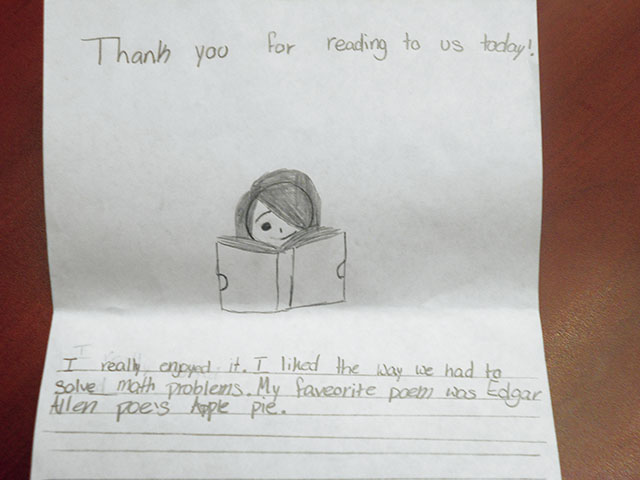 Thank you for reading to us today!
I really enjoyed it. I liked the way we had to
solve math problems. My faveorite poem was Edgar
Allen poe's Apple pie.